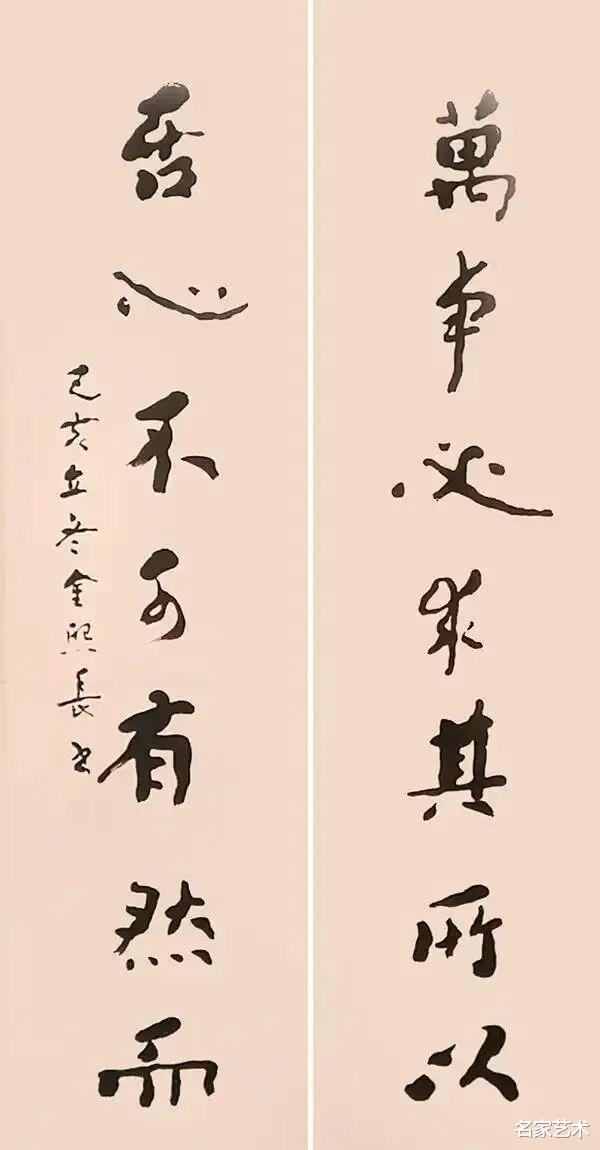 萬事必求其所以
吾心不可有然而
己亥立冬金熙長书
名家艺术